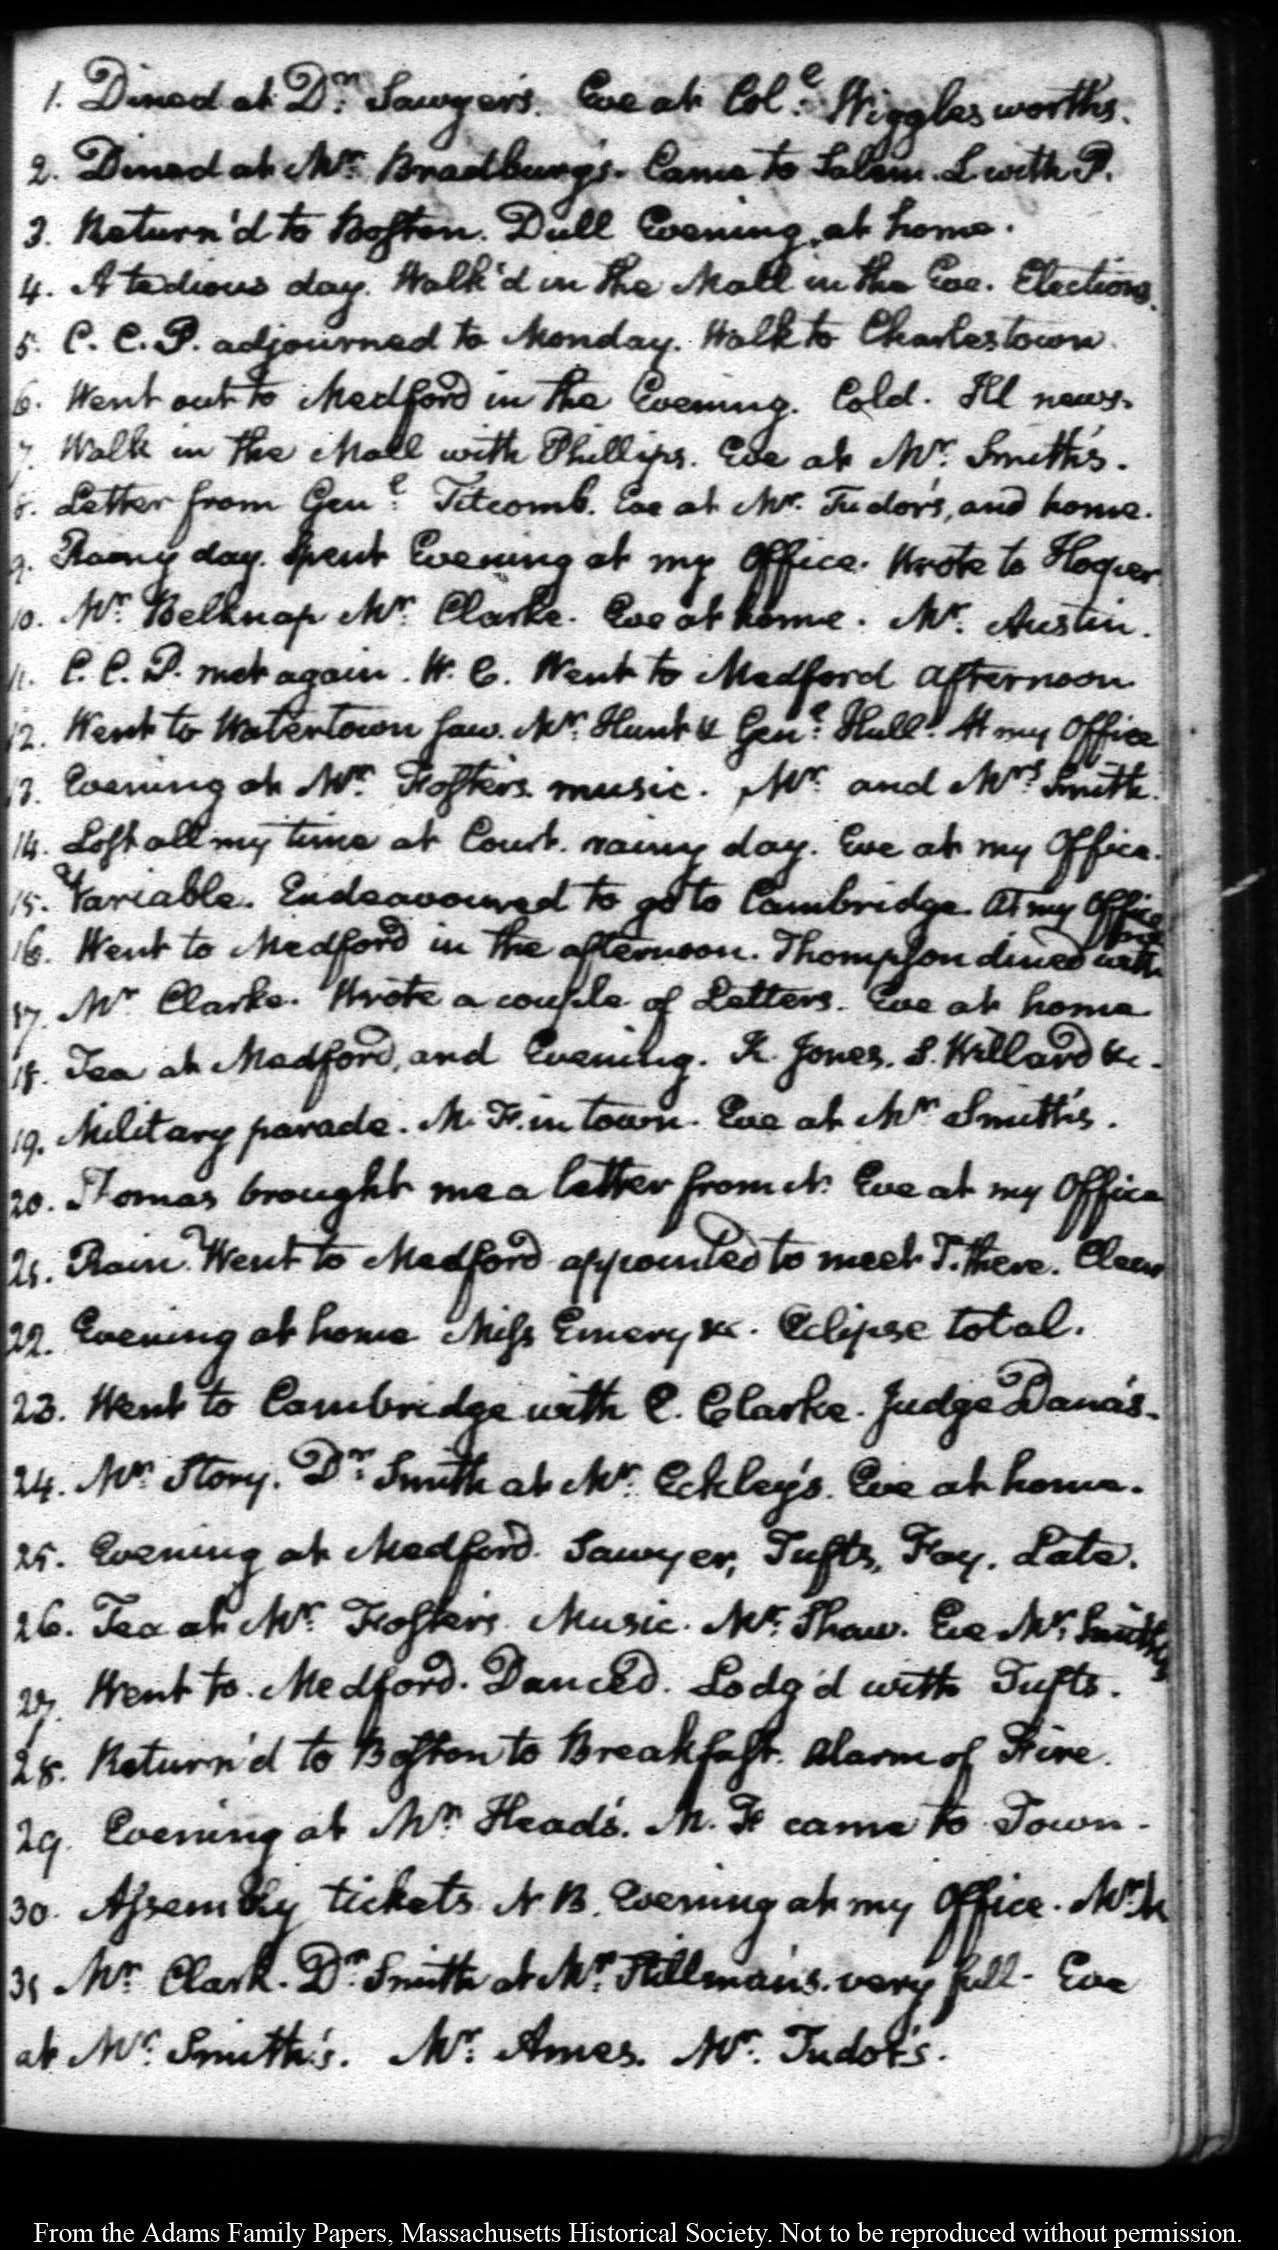 1. Dined at Dr. Sawyer's. Eve at Col.e Wigglesworth's.
2. Dined at Mr. Bradbury's. Came to Salem. L with P.
3. Return'd to Boston. Dull Evening at home.
4. A tedious day. Walk'd in the Mall in the Eve. Elections.
5. C. C. P. adjourned to Monday. Walk to Charlestown.
6. Went out to Medford in the Evening. Cold. Ill news.
7. Walk in the Mall with Phillips. Eve at Mr. Smith's.
8. Letter from Gen.l Titcomb. Eve at Mr. Tudor's, and home.
9. Rainy day. Spent Evening at my Office. Wrote to
10. Mr. Belknap Mr. Clarke. Eve at home. Mr. Austin.
11. C. C. P. met again. W. C. Went to Medford afternoon
12. Went to Watertown saw. Mr. Hunt & Gen.l Hull. At my Office
13. Evening at Mr. Foster's music. Mr. and Mrs. Smith.
14. Lost all my time at Court. rainy day. Eve at my Office.
15. Variable. Endeavoured to go to Cambridge. At my Office
16. Went to Medford in the afternoon. Thompson dined with me
17. Mr Clarke. Wrote a couple of Letters. Eve at home
18. Tea at Medford, and Evening. K. Jones. S. Willard &c.
19. Military parade. M. F. in town. Eve at Mr Smith's.
20. Thomas brought me a letter from Eve at my Office
21. Rain. Went to Medford appointed to meet T. there. Clear
22. Evening at home Miss Emery &c. Eclipse total.
23. Went to Cambridge with C. Clarke. Judge Dana's.
24. Mr Story. Dr. Smith at Mr. Eckley's. Eve at home.
25. Evening at Medford. Sawyer, Tufts, Fay. Late.
26. Tea at Mr. Foster's. Music. Mr. Shaw. Eve Mr. Smith's
27. Went to Medford. Danced. Lodg'd with Tufts.
28. Return'd to Boston to Breakfast. Alarm of Fire.
29. Evening at Mr Head's. M. F came to Town.
30. Assembly tickets N B. Evening at my Office.
31 Mr Clark. Dr. Smith at Mr. Stillman's. very full. Eve
at Mr. Smith's. Mr. Ames. Mr. Tudor's.
From the Adams Family Papers, Massachusetts Historical Society. Not to be reproduced without permission.